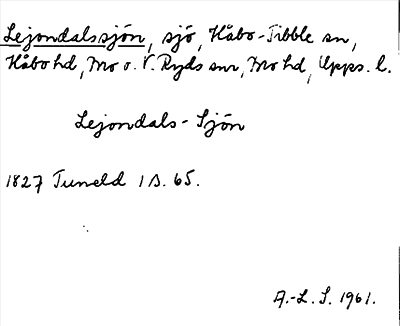 Lejondalssjön, sjö, Håbo-Tibble sn,
Håbo hd, Mo o. V. Ryds snr, Mo hd, Upps. l.
Lejondals-Sjön
1827 Tuneld 1 B. 65.
A.-L. S. 1961.